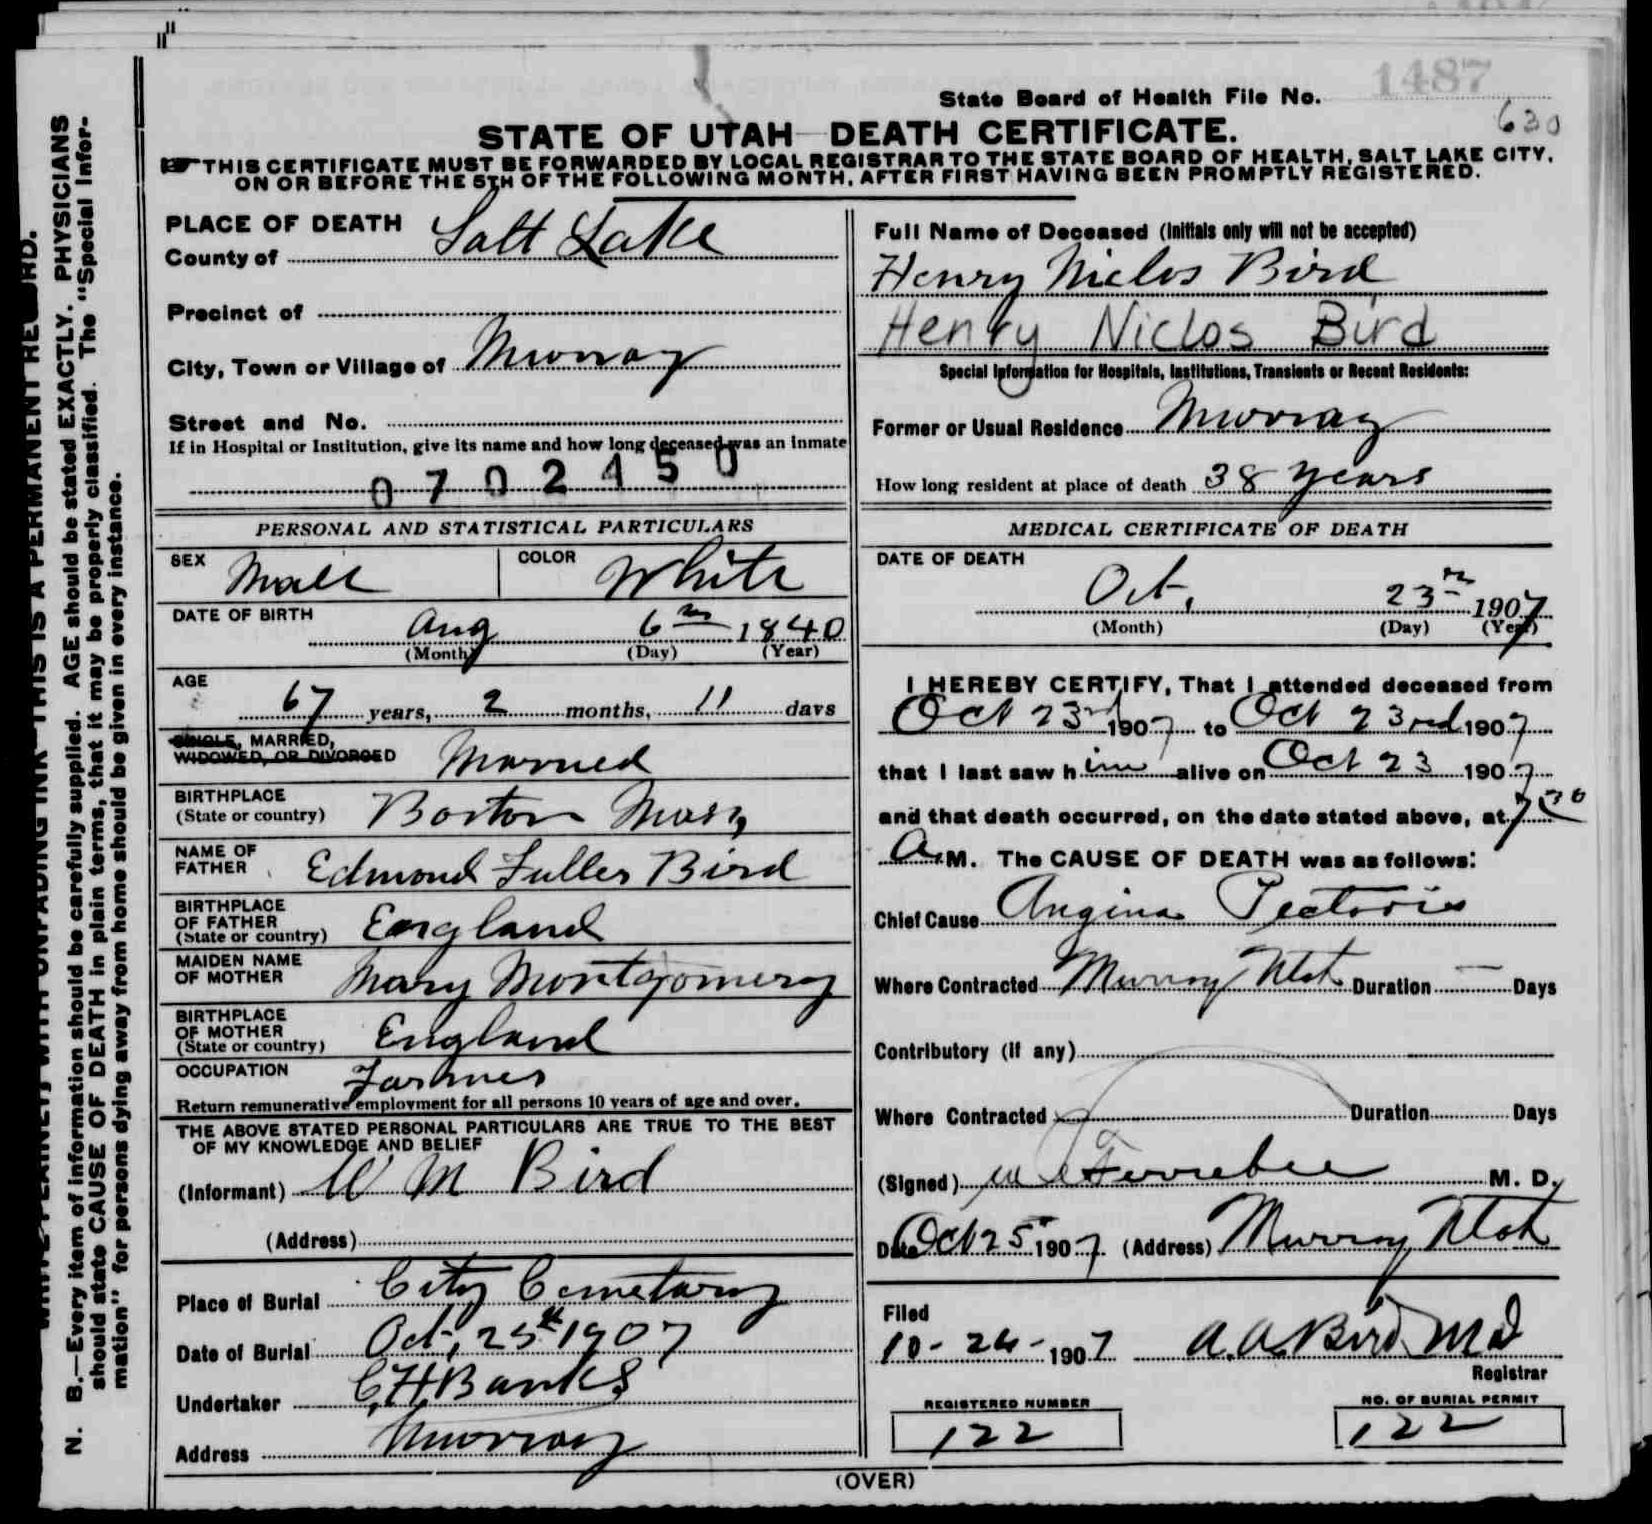 1487
State Board of Health File No.
630
STATE OF UTAH—DEATH CERTIFICATE.
THIS CERTIFICATE MUST BE FORWARDED BY LOCAL REGISTRAR TO THE STATE BOARD OF HEALTH, SALT LAKE CITY,
ON OR BEFORE THE 5TH OF THE FOLLOWING MONTH, AFTER FIRST HAVING BEEN PROMPTLY REGISTERED.
WRITE PLAINLY WITH UNFADING INK—THIS IS A PERMANENT RECORD.
N. B.—Every item of information should be carefully supplied. AGE should be stated EXACTLY. PHYSICIANS
should state CAUSE OF DEATH in plain terms, that it may be properly classified. The "Special Infor-
mation" for persons dying away from home should be given in every instance.
PLACE OF DEATH
County of Salt Lake
Precinct of
City, Town or Village of Murray
Street and No.
If in Hospital or Institution, give its name and how long deceased was an inmate
0702450
PERSONAL AND STATISTICAL PARTICULARS
SEX Male COLOR White
DATE OF BIRTH
Aug 6th 1840
(Month) (Day) (Year)
AGE
67 years, 2 months, 11 days
SINGLE, MARRIED,
WIDOWED, OR DIVORCED Married
BIRTHPLACE
(State or country) Boston Mass
NAME OF
FATHER Edmond Fuller Bird
BIRTHPLACE
OF FATHER
(State or country) England
MAIDEN NAME
OF MOTHER Mary Montgomery
BIRTHPLACE
OF MOTHER
(State or country) England
OCCUPATION Farmer
Return remunerative employment for all persons 10 years of age and over.
THE ABOVE STATED PERSONAL PARTICULARS ARE TRUE TO THE BEST
OF MY KNOWLEDGE AND BELIEF
(Informant) W M Bird
(Address)
Place of Burial City Cemetary
Date of Burial Oct, 25th 1907
Undertaker C,H,Banks
Address Murray
Full Name of Deceased (Initials only will not be accepted)
Henry Niclos Bird
Henry Niclos Bird
Special Information for Hospitals, Institutions, Transients or Recent Residents:
Former or Usual Residence Murray
How long resident at place of death 38 years
MEDICAL CERTIFICATE OF DEATH
DATE OF DEATH
Oct, 23 1907
(Month) (Day) (Year)
I HEREBY CERTIFY, That I attended deceased from
Oct 23rd 1907 to Oct 23rd 1907
that I last saw him alive on Oct 23 1907
and that death occurred, on the date stated above, at 7 30
A.M. The CAUSE OF DEATH was as follows:
Chief Cause Angina Pectoris
Where Contracted Murray Utah Duration — Days
Contributory (if any)
Where Contracted Duration Days
(Signed) Ferrebee M. D.
Date Oct 25 1907 (Address) Murray Utah
Filed
10-24-1907 A.A. Bird MD
Registrar
REGISTERED NUMBER
122
NO. OF BURIAL PERMIT
122
(OVER)